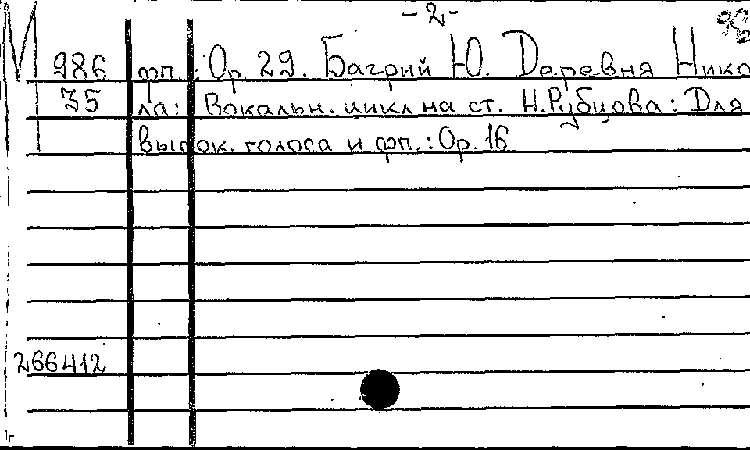 -2-
М 986 фп.: Ор. 29. Багрий Ю. Деревня Нико
35 ла: Вокальн. цикл на ст. Н. Рубцова: Для
высок. голоса и фп.: Ор. 16
266412